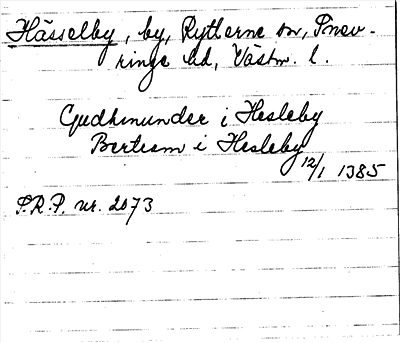 Hässelby, by, Rytterne sn, Snev-
ringe hd, Västm. l.
Gudhmunder i Hesleby
Bertram i Hesleby
12/1 1385
S.R.P. nr. 2073